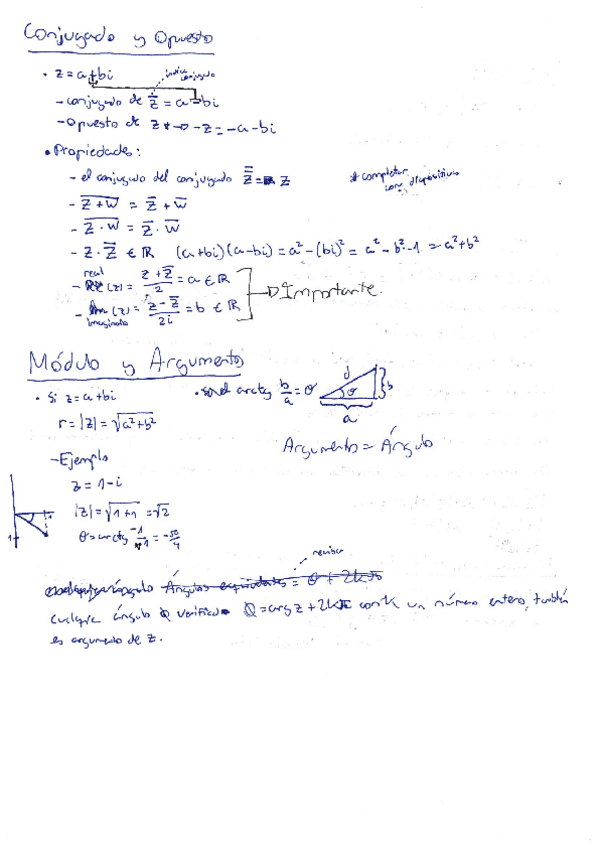 Conjugado y Opuesto
• z = a + bi
indica conjugado
- conjugado de z̅ = a - bi
- Opuesto de z → -z = -a - bi
• Propiedades:
- el conjugado del conjugado z̿ = z
* completar con diapositivas
- \overline{z + w} = z̅ + w̅
- \overline{z · w} = z̅ · w̅
- z · z̅ ∈ ℝ (a+bi)(a-bi) = a² - (bi)² = a² - b² · -1 = a² + b²
real
- Re(z) = (z + z̅)/2 = a ∈ ℝ
→ Importante.
- Im(z) = (z - z̅)/2i = b ∈ ℝ
Imaginario
Módulo y Argumento
• Si z = a + bi
• arctg b/a = θ
d
θ
b
a
r = |z| = √(a² + b²)
Argumento = Ángulo
- Ejemplo
z = 1 - i
|z| = √(1+1) = √2
θ = arctg -1/1 = -π/4
1
revisar
Ángulos equivalentes = θ + 2kπ
cualquier ángulo θ verifica θ = arg z + 2kπ con k un número entero, también
es argumento de z.